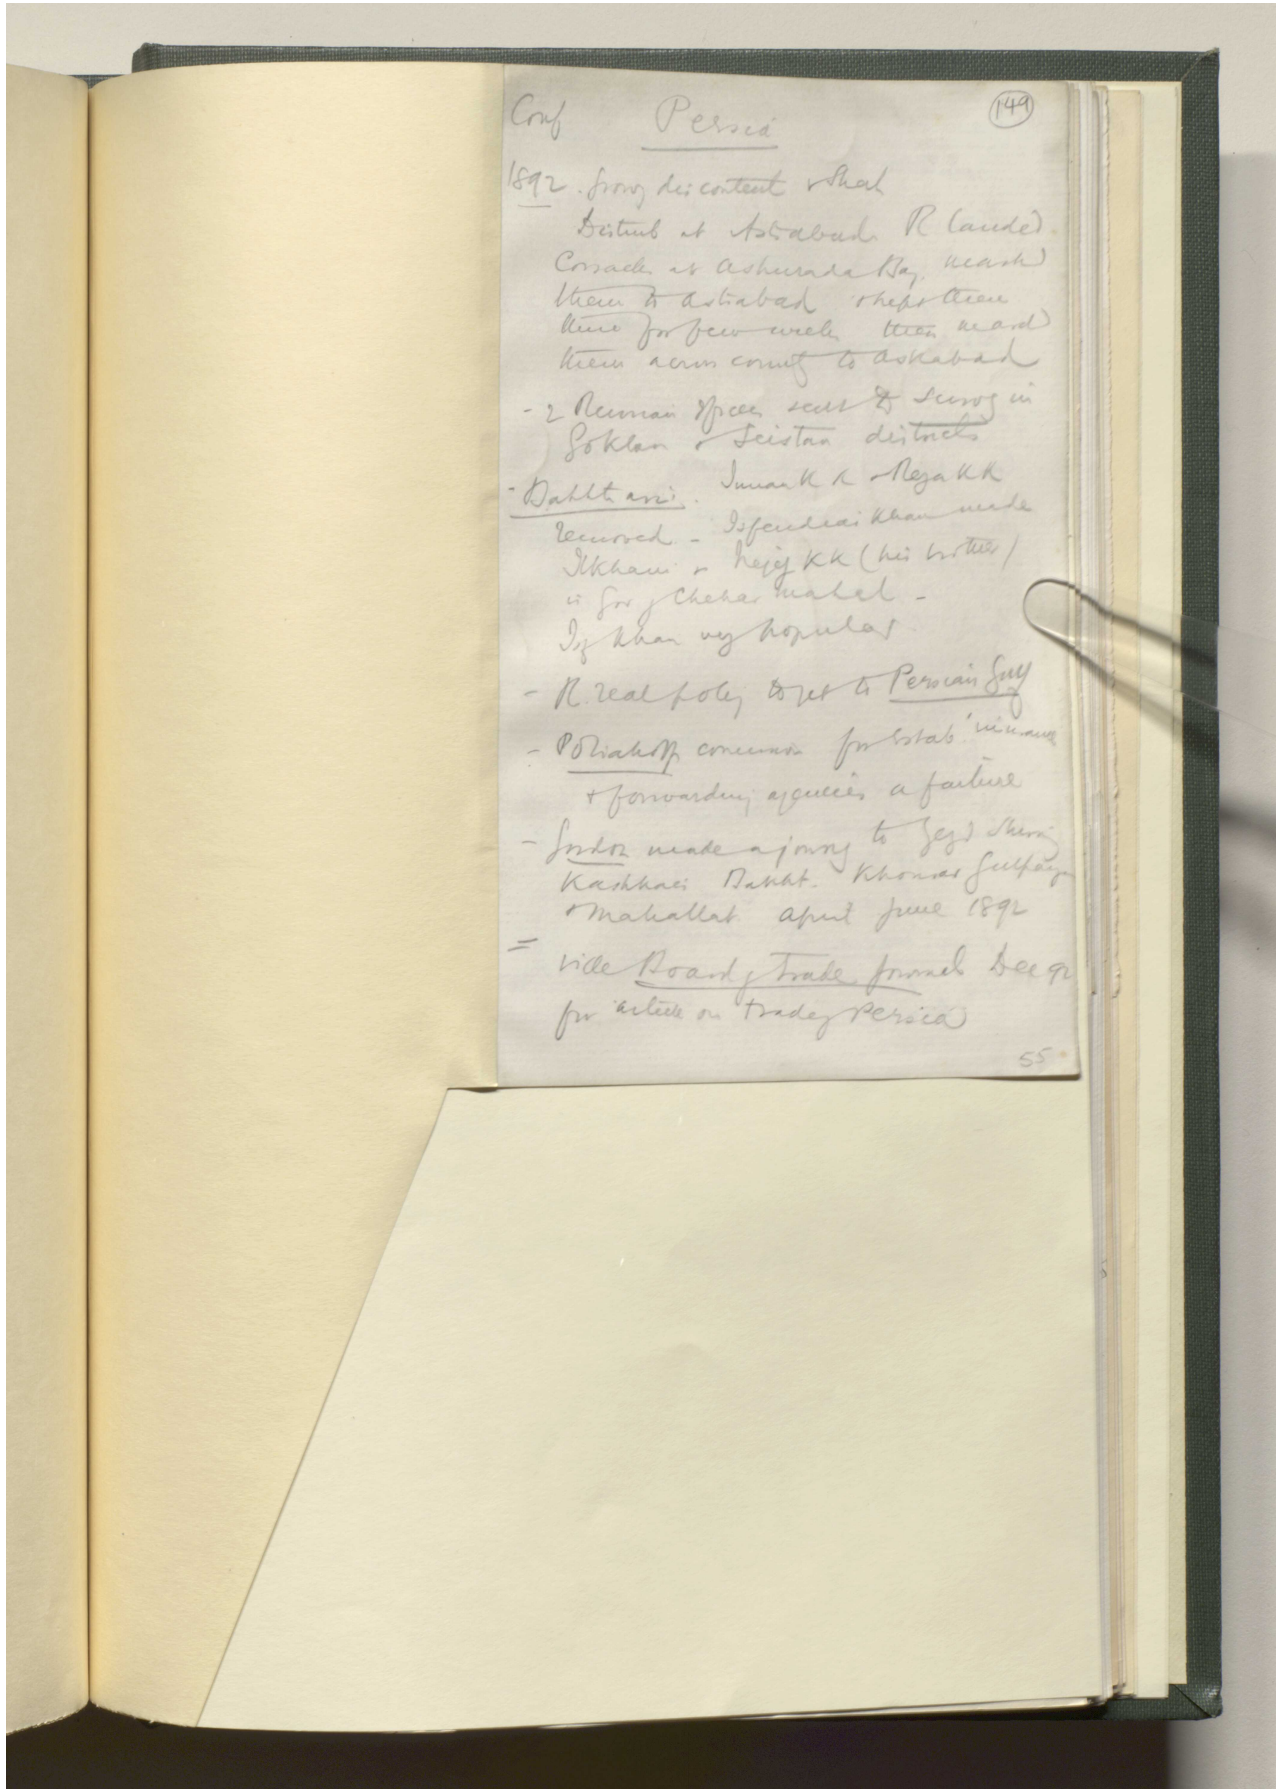 Conf Persia 149
1892. Growg discontent & Shah
Disturb at Astrabad. R landed
Cossacks at Ashurada Bay. marchd
them to Astrabad & kept them
there for few weeks then marchd
them across country to Askabad
- 2 Russian officers sent to survey in
Goklan & Seistan districts
- Bakhtiari. Imam K K & Reza K K
removed - Isfendiar Khan made
Ilkhani & Nejef KK (his brother)
is Gov of Chehar Mahal -
Isf Khan very popular
- R. real policy to get to Persian Gulf
- Poliakoff concession for estab. insurance
& forwarding agencies a failure
- Gordon made a journey to Yezd Shiraz
Kashkai Bakht. Khonsar Gulpaigan
& Mahallat April June 1892
=
vide Board of Trade Journal Dec 92
for article on trade of Persia
55